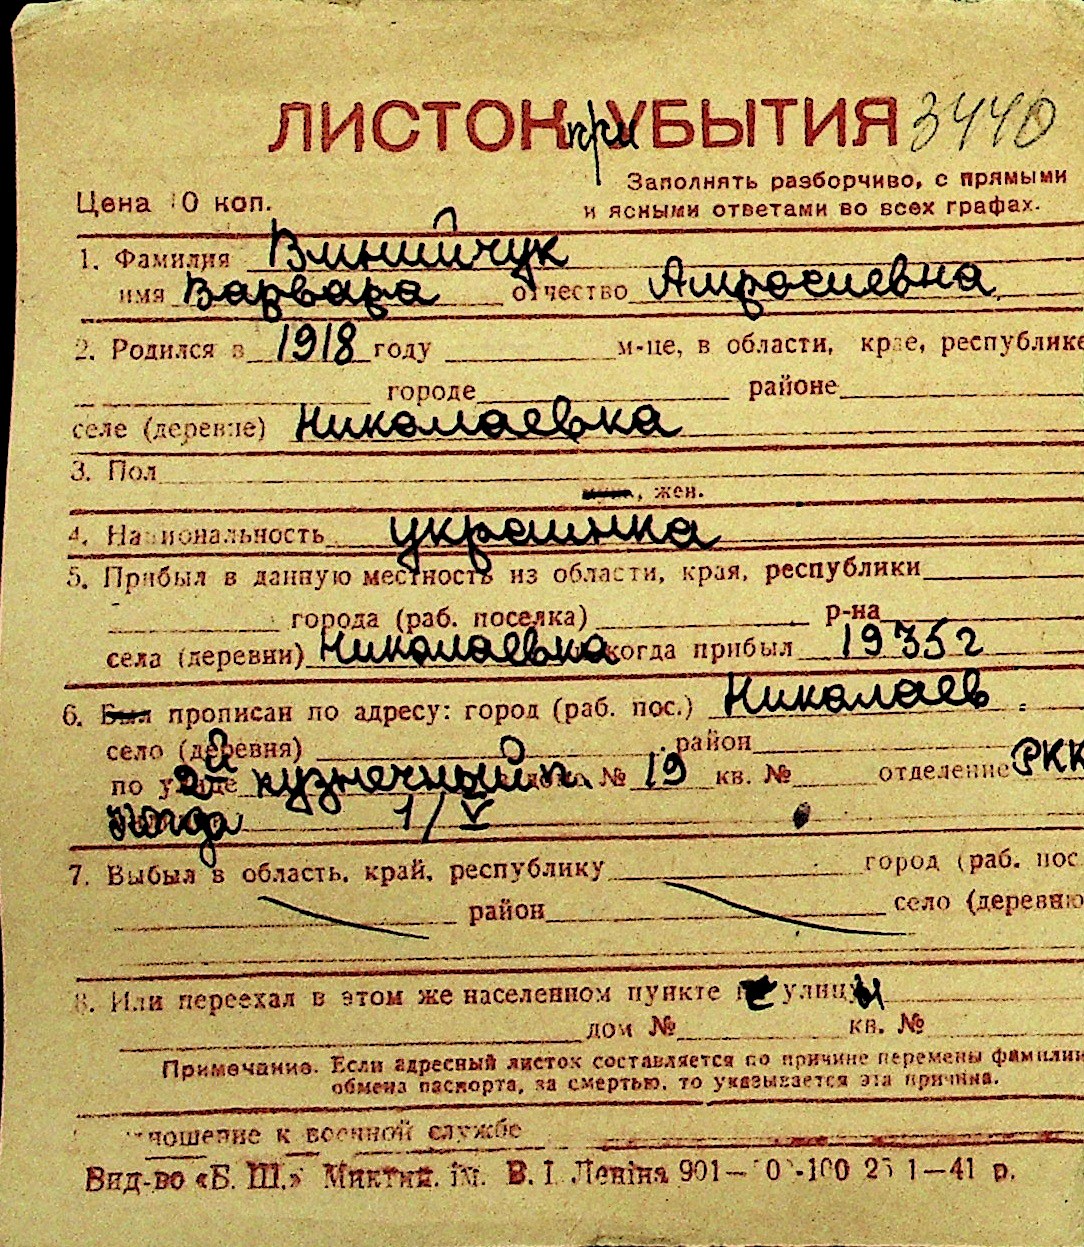 ЛИСТОК при УБЫТИЯ 3440
Цена 10 коп.
Заполнять разборчиво, с прямыми
и ясными ответами во всех графах.
1. Фамилия Влийчук
имя Варвара отчество Амросиевна
2. Родился в 1918 году м-це, в области, крае, республике
городе районе
селе (деревне) Николаевка
3. Пол
муж, жен.
4. Национальность украинка
5. Прибыл в данную местность из области, края, республики
города (раб. поселка) р-на
села (деревни) Николаевка когда прибыл 1935 г
6. Был прописан по адресу: город (раб. пос.) Николаев
село (деревня) район
по улице 2й кузнечный п. дома № 19 кв. № отделение РКК
1/V
7. Выбыл в область, край, республику город (раб. пос
район село (деревню
8. Или переехал в этом же населенном пункте улицы
дом № кв. №
Примечание. Если адресный листок составляется по причине перемены фамилии
обмена паспорта, за смертью, то указывается эта причина.
ношение к военной службе
Вид-во «Б. Ш.» Микти. ім. В. І. Леніна 901— -100 1—41 р.